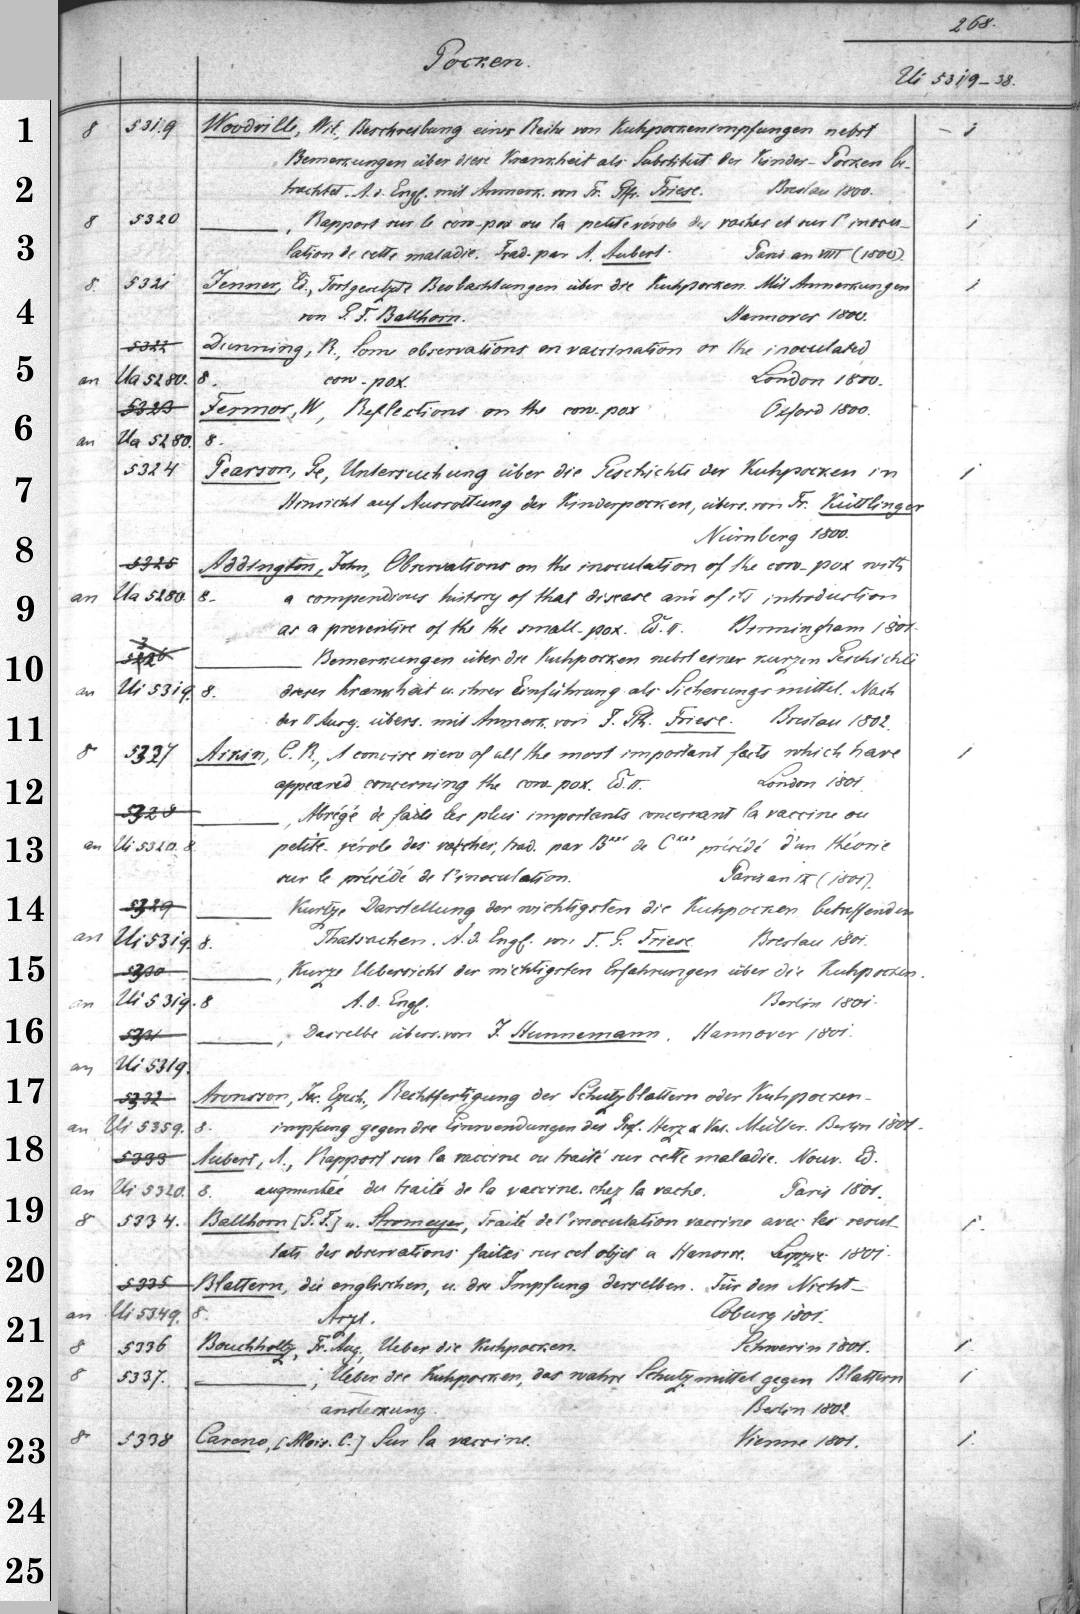 268.
Pocken.
Ui 5319-38.
8 5319 Woodville, Wil, Beschreibung einer Reihe von Kuhpockenimpfungen nebst - 1
Bemerkungen über diese Krankheit als Substitut der Kinder-Pocken be-
trachtet. A. d. Engl. mit Anmerk. von Fr. Gfr. Friese. Breslau 1800.
8 5320 ———, Rapport sur le cow-pox ou la petite vérole des vaches et sur l'inocu- 1
lation de cette maladie. Trad. par A. Aubert. Paris an VIII (1800).
8. 5321 Jenner, Ed., Fortgesetzte Beobachtungen über die Kuhpocken. Mit Anmerkungen 1
von G. F. Ballhorn. Hannover 1800.
5322 Dunning, R., Some observations on vaccination or the inoculated
an Ua 5280. 8. cow-pox. London 1800.
5323 Fermor, W, Reflections on the cow-pox Oxford 1800.
an Ua 5280. 8.
5324 Pearson, Ge, Untersuchung über die Geschichte der Kuhpocken in 1
Hinsicht auf Ausrottung der Kinderpocken, übers. von Fr. Küttlinger
Nürnberg 1800.
5325 Addington, John, Observations on the inoculation of the cow-pox with
an Ua 5280 8. a compendious history of that disease and of its introduction
as a preventive of the the small-pox. Ed. II. Birmingham 1801.
5326 ——— Bemerkungen über die Kuhpocken nebst einer kurzen Geschichte
an Ui 5319. 8. dieser Krankheit u. ihrer Einführung als Sicherungsmittel. Nach
der II Ausg. übers. mit Anmerk. von F. Ph. Friese. Breslau 1802.
8 5327 Aikin, C. R., A concise view of all the most important facts which have 1
appeared concerning the cow-pox. Ed. II. London 1801.
5328 ———, Abrégé de faits les plus importants concernant la vaccine ou
an Ui 5320. 8. petite-vérole des vaches, trad. par B*** de C*** précédé d'un théorie
sur le précédé de l'inoculation. Paris an IX (1801).
5329 ——— Kurtze Darstellung der wichtigsten die Kuhpocken betreffenden
an Ui 5319. 8. Thatsachen. A. d. Engl. von F. G. Friese Breslau 1801.
5330 ———, Kurze Uebersicht der wichtigsten Erfahrungen über die Kuhpocken.
an Ui 5319. 8 A. d. Engl. Berlin 1801.
5331 ———, Dasselbe übers. von J. Hunnemann. Hannover 1801.
an Ui 5319.
5332 Aronsson, Rechtfertigung der Schutzblattern oder Kuhpocken-
an Ui 5359. 8. impfung gegen die Einwendungen des Prof. Herz u. Müller. Berlin 1801.
5333 Aubert, A., Rapport sur la vaccine ou traité sur cette maladie. Nouv. Ed.
an Ui 5320. 8. augmentée du traité de la vaccine chez la vache. Paris 1801.
8 5334. Ballhorn [G. F.] u. Stromeyer, Traité de l'inoculation vaccine avec les resul- 1.
tats des observations faites sur cet objet a Hanovre. Leipzic 1801.
5335 Blattern, die englischen, u. die Impfung derselben. Für den Nicht-
an Ui 5349. 8. Arzt. Coburg 1801.
8 5336 Bouchholtz, Fr. Aug, Ueber die Kuhpocken. Schwerin 1801. 1.
8 5337. ———, Ueber die Kuhpocken, das wahre Schutzmittel gegen Blattern 1
ansteckung. Berlin 1802
8 5338 Careno, [Alois. C.] Sur la vaccine. Vienne 1801. 1.
1
2
3
4
5
6
7
8
9
10
11
12
13
14
15
16
17
18
19
20
21
22
23
24
25